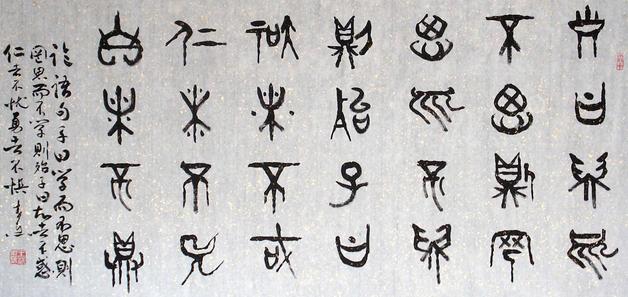 子曰學而
不思則罔
思而不學
則殆子曰
知者不惑
仁者不憂
勇者不懼
论语句子曰学而不思則
罔思而不学則殆子曰知者不惑
仁者不忧勇者不惧